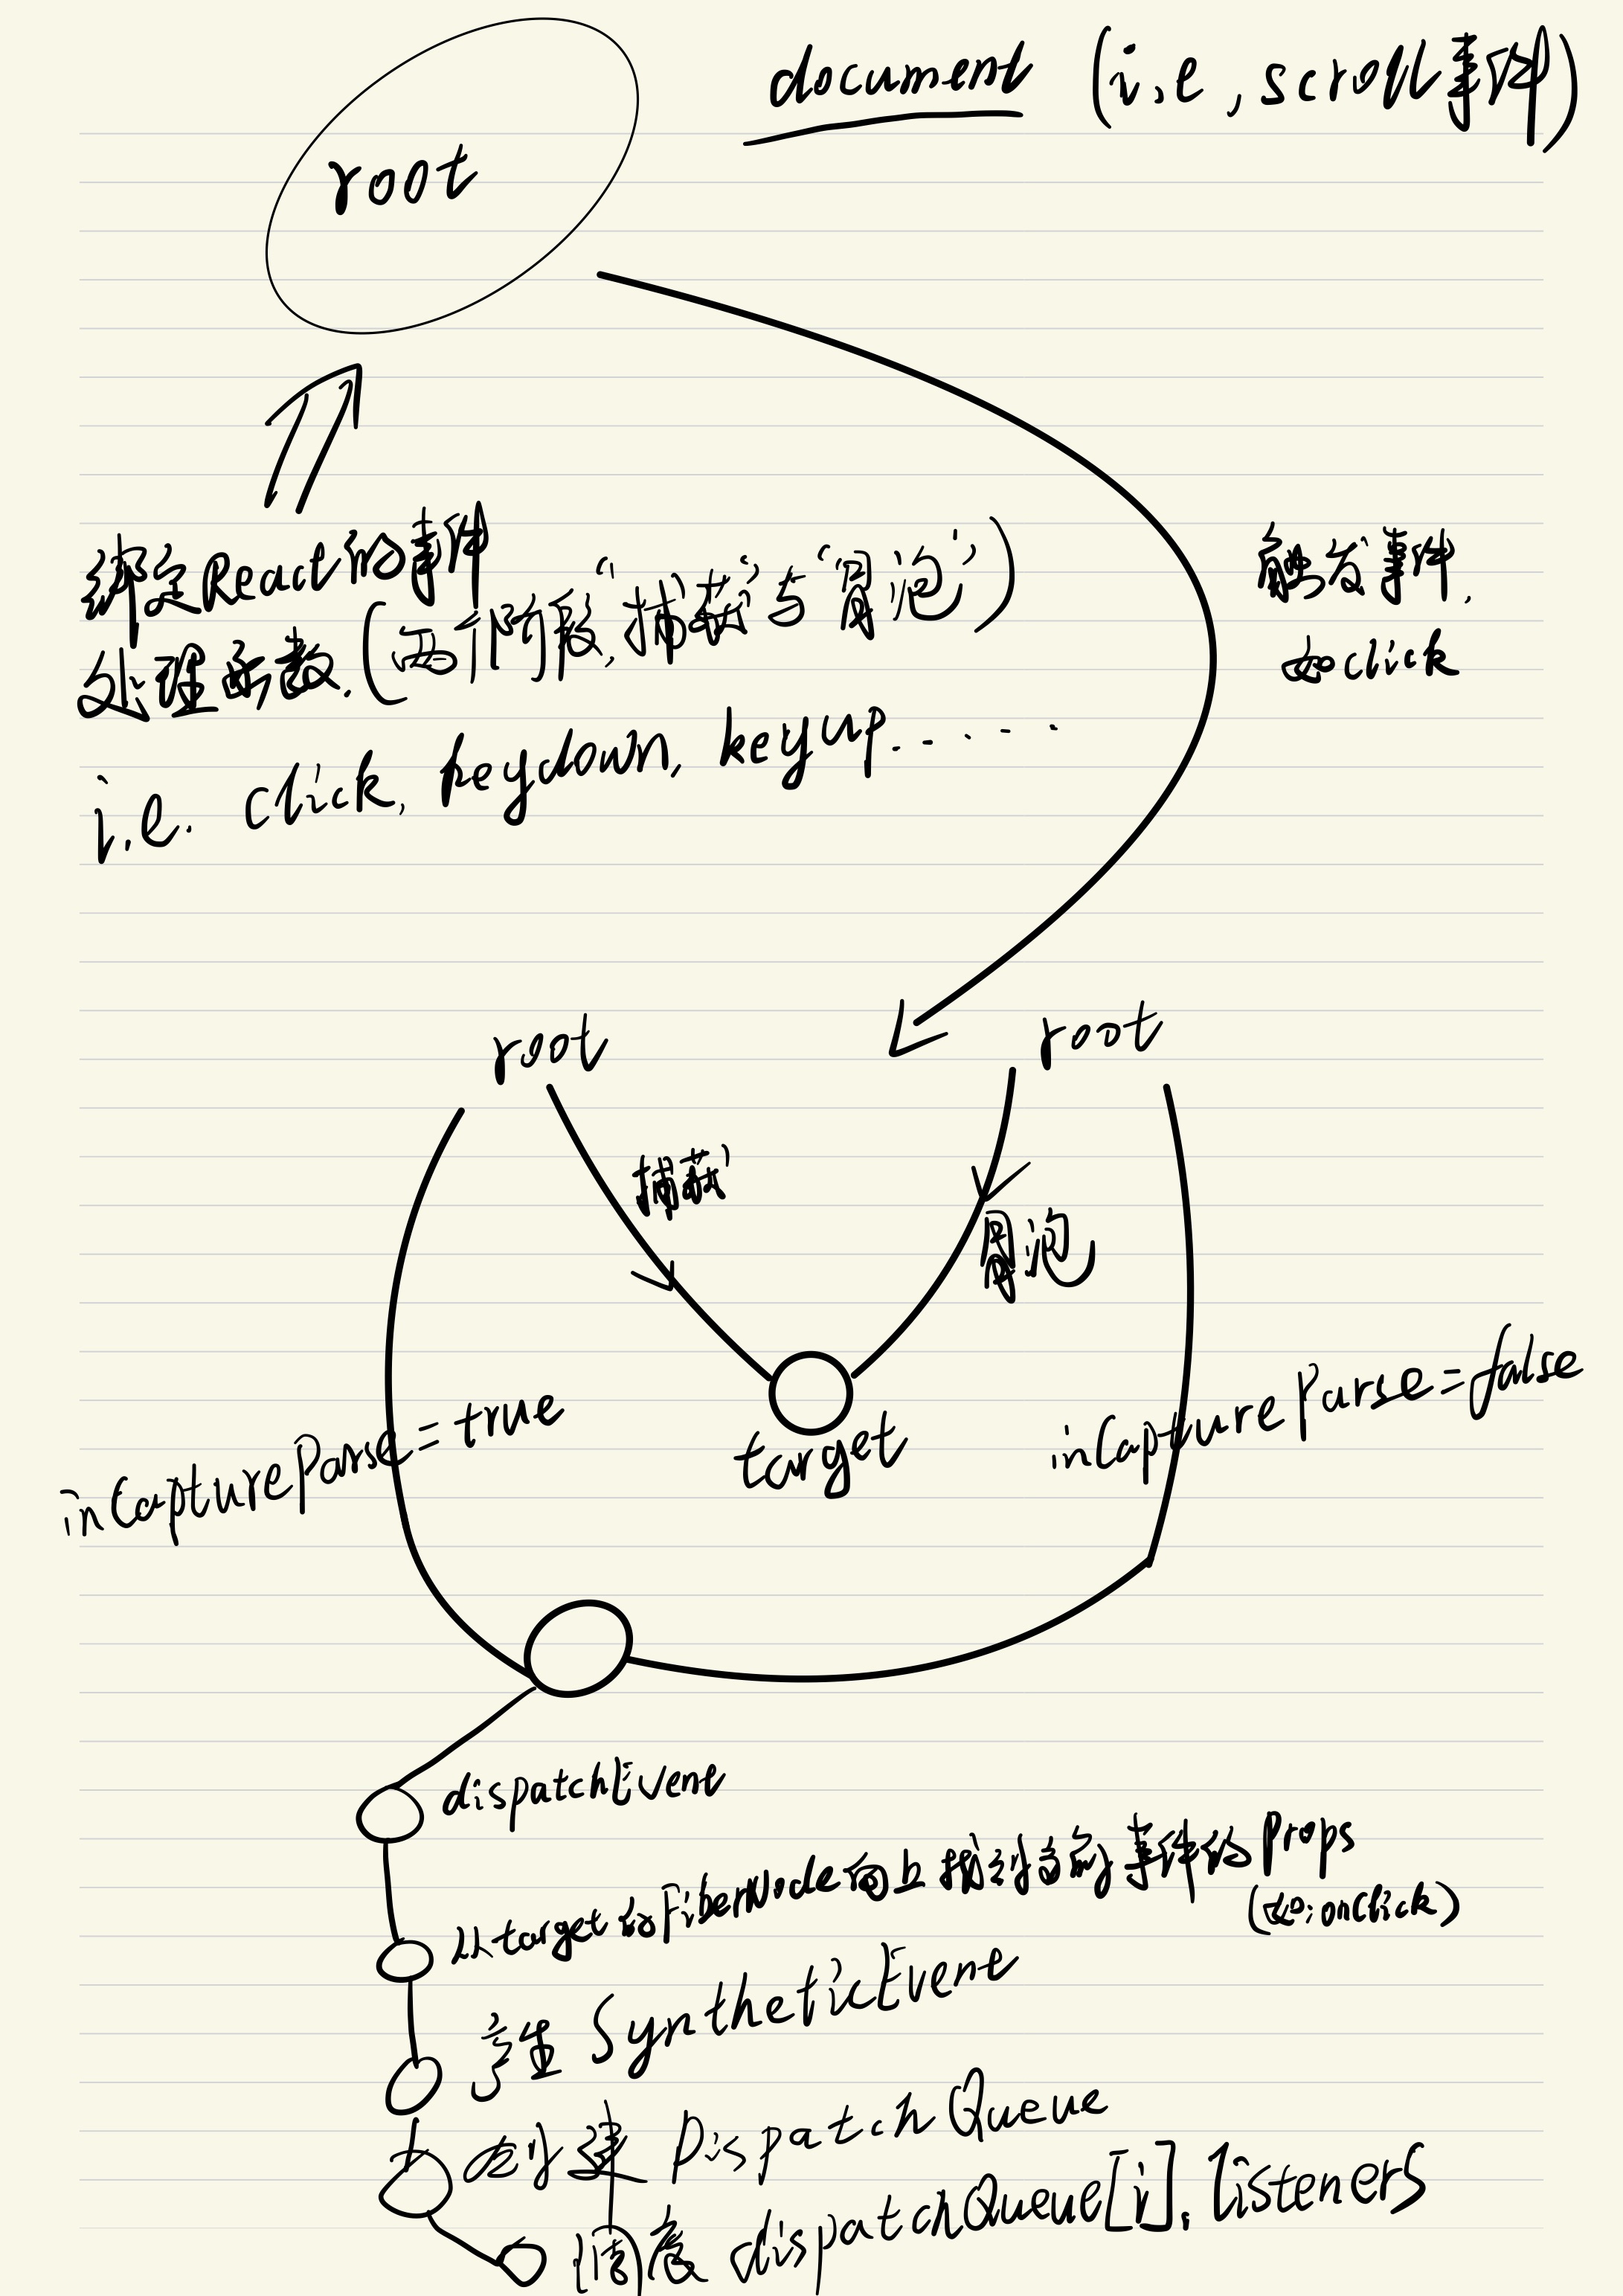 root
document (i.e, scroll事件)
绑定React的事件
处理函数.(两个阶段,“捕获”与“冒泡”)
i.e. click, keydown, keyup......
触发事件,
如click
root
root
捕获
冒泡
target
inCaptureParse=true
inCaptureParse=false
dispatchEvent
从target的FiberNode向上找到当前事件的Props
(如:onClick)
产生 SyntheticEvent
创建 DispatchQueue
调度 dispatchQueue[i].listeners